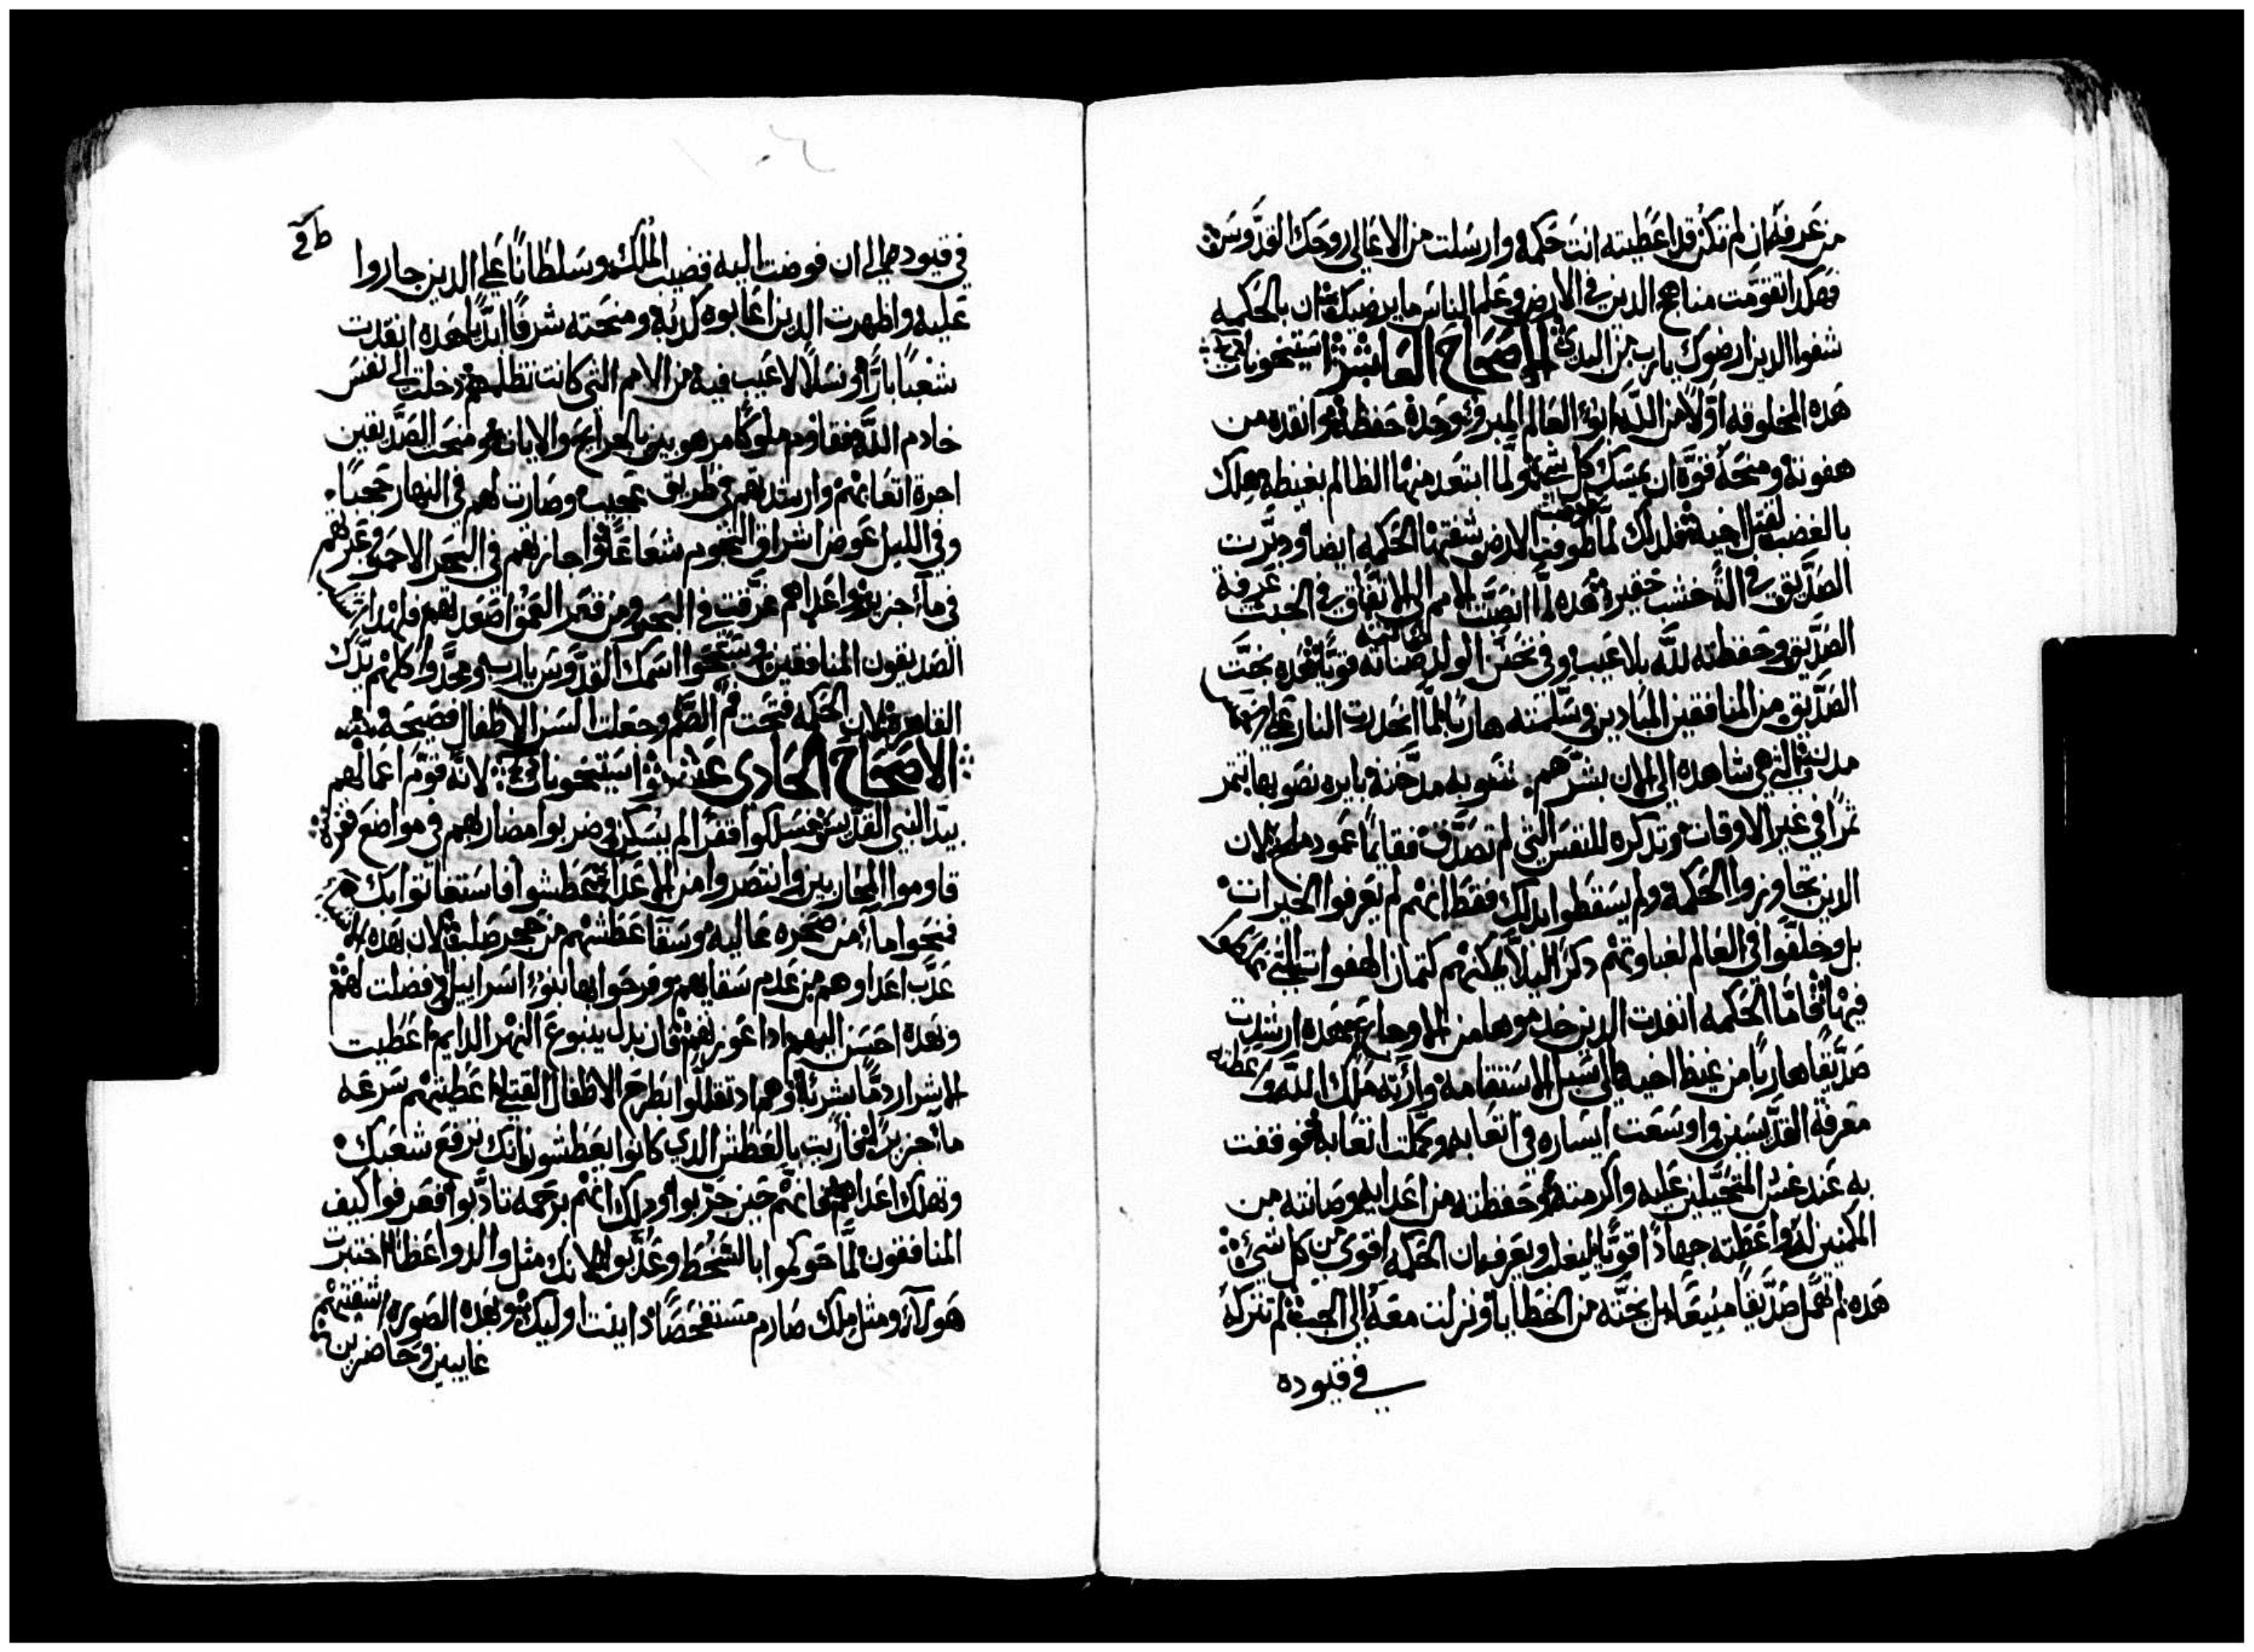 من عرفه ان لم تكن قد اعطيته انت حكمة وارسلت من الاعالي روحك القدوس
فهكذا تقومت مناهج الدين في الارض وعلم الناس ما يرضيك ان بالحكمه
شفوا الدين ارضوك يارب من البدي الاصحاح العاشر استيخوبات
هده المخلوقه اولا من الله ابو العالم المبروء وحده حفظته وانقدته من
هفوته ومنحته قوة ان يمسك كل شي ولما ابتعد منها الظالم بغيظه هلك
بالغضب لقتل اخيه فلدلك لما طوفت الارض شفتها الحكمه ايضا ودبرت
الصديق في الخشب حقير هده لما انصبت الامم الي الاتفاق في الخبث عرفة
الصديق وحفظته لله بلا عيب وفي تحنن الولد صانته قويا هده نجت
الصديق من المنافقين المبادين وسلمته هاربا لما انحدرت النار علي
مدن التي هي شاهده الي الان بشرهم تنتو به مدخنه بايره نصوبها تتمر
تمرا في غير الاوقات وتدكره للنفس التي لم تصدق فقايما عمود ملح لان
الدين تجاوزوا الحكمة ولم يسقطوا بدلك فقط انهم لم يعرفوا الخيرات
بل وخلفوا في العالم لغباوتهم دكرا ليلا يمكنهم كتمان الهفوات التي
فيها فاما الحكمه انقدت الدين خدموها من الاوجاع هده ارشدت
صديقا هاربا من غيظ اخيه في سبل الاستقامه وارته ملك الله واعطته
معرفة القديسين واوسعت ايساره في اتعابه وكملت اتعابه ووقفت
به عند غش المتحيلين عليه واكرمته وحفظته من اعدايه وصانته من
المكمنين له واعطته جهادا قويا ليغلب ويعرف ان الحكمه اقوي من كل شي
هده لم تهمل صديقا مبيعا بل نجته من الخطايا ونزلت معه الي الجب لم تتركه
في قيوده
في قيوده الي ان فوضت اليه قضيب الملك وسلطانا علي الدين جاروا
عليه واظهرت الدين اعابوه كدبة ومنحته شرفا ابديا هده انقدت
شعبا بارا ونسلا لا عيب فيه من الامم التي كانت تظلمهم دخلت الي نفس
خادم الله فقاوم ملوكا مرهوبين بالجرايح والايات ومنحت الصديقين
اجرة اتعابهم وارشدتهم في طريق عجيب وصارت لهم في النهار حجبا
وفي الليل عوض اشراق النجوم شعاعا واجازتهم في البحر الاحمر وعبرتهم
في ما جزيل واعداهم غرقت في البحر ومن قعر العمق اصعدتهم فلهدا
الصديقون المنافقين وسبحوا اسمك القدوس يارب ومجدوا كلهم يدك
القاهره لان الحكمه فتحت فم الصم وجعلت السن الاطفال فصيحة
الاصحاح الحادي عشر استيخوبات لانه قوم اعمالهم
بيد النبي القديس فسلكوا قفرا لم يسكن وضربوا مضاربهم في مواضع قفره
قاوموا المحاربين وانتصروا من الاعدا عطشوا فاستغاتوا بك
فمنحوا ما من صخره عاليه وسقا عطشهم من حجر صلب لان بهده
عدب اعداوهم من عدم سقايهم وفرحوا بها بنو اسراييل اد فضلت لهم
وبهده احسن اليهم ادا عوزتهم فان بدل ينبوع النهر الدايم اعطيت
الاشرار دما بشريا وهم اد تقللوا بطرح الاطفال القتلي اعطيتهم سرعه
ما جزيلا فاريت بالعطش الدي كانوا يعطشون انك ترفع شعبك
وتهلك اعداهم فانهم حين جربوا ودلك انهم برحمه تادبوا فعرفوا كيف
المنافقون لما حوكموا بالسخط وعدبوا لانك مثل والد واعظا اختبرت
هولا ومثل ملك صارم مستفحصا دايبت اوليك وبهده الصوره شفتهم
غايبين وحاضرين